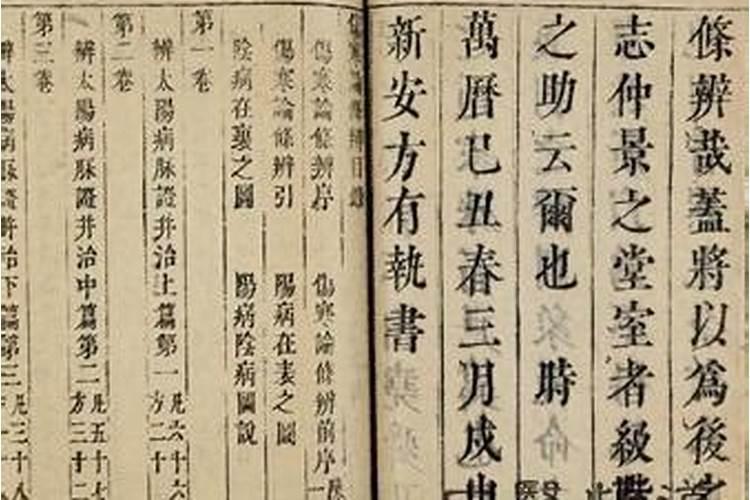 條辨哉蓋將以為後之
志仲景之堂室者級階
之助云爾也時
萬曆己丑春三月戍申
新安方有執書
傷寒論條辨目錄
傷寒論條辨序 傷寒論條辨前序
傷寒論條辨引 陽病在表之圖
陰病在裏之圖 陽病陰病圖說
第一卷
辨太陽病脉證并治上篇第一 凡六十六 方二十
第二卷
辨太陽病脉證并治中篇第二 凡五十七 方三十二
第三卷
辨太陽病脉證并治下篇第三 凡三十八